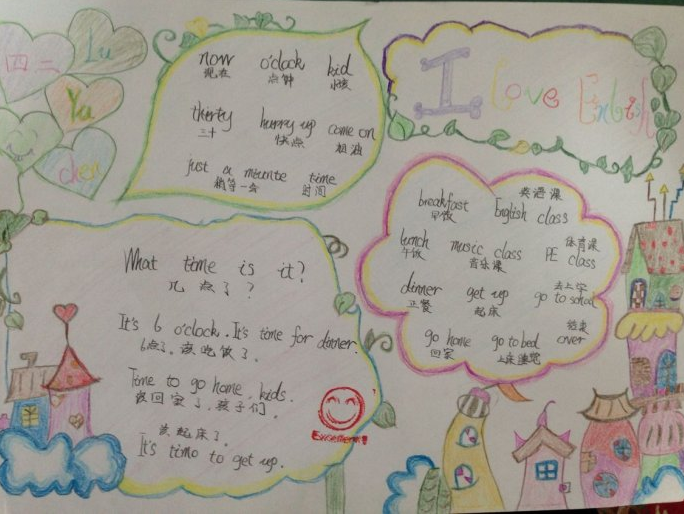 四二
Lu
Yu
chen
now o'clock kid
现在 点钟 小孩
thirty hurry up come on
三十 快点 加油
just a miunte time
稍等一会 时间
I love English
breakfast English class
早饭 英语课
lunch music class PE class
午饭 音乐课 体育课
dinner get up go to school
正餐 起床 去上学
go home go to bed over
回家 上床睡觉 结束
What time is it?
几点了?
It's 6 o'clock. It's time for dinner.
6点了。该吃饭了。
Time to go home, kids.
该回家了,孩子们。
该起床了。
It's time to get up.
Excellent!